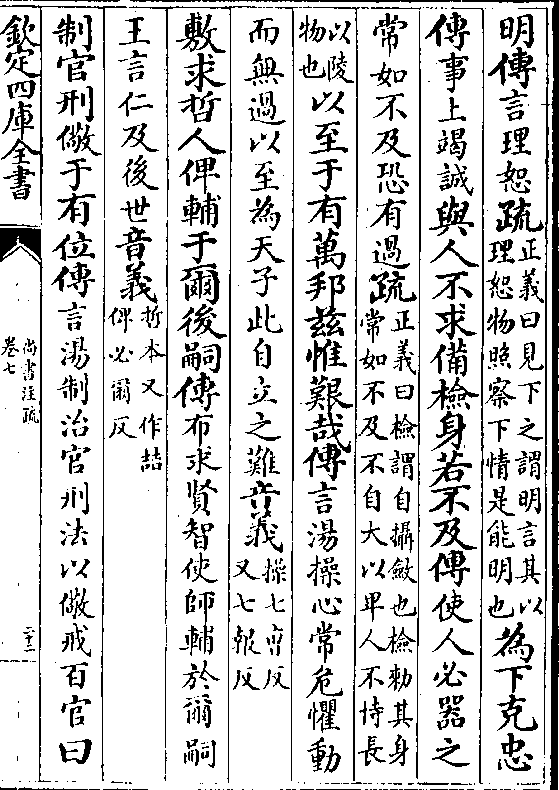 明傳言理恕疏正義曰見下之謂明言其以
理恕物照察下情是能明也為下克忠
傳事上竭誠與人不求備檢身若不及傳使人必器之
常如不及恐有過疏正義曰檢謂自攝斂也檢勑其身
常如不及不自大以卑人不恃長
以陵
物也以至于有萬邦茲惟艱哉傳言湯操心常危懼動
而無過以至為天子此自立之難音義操七曺反
又七報反
敷求哲人俾輔于爾後嗣傳布求賢智使師輔於爾嗣
王言仁及後世音義哲本又作喆
俾必爾反
制官刑儆于有位傳言湯制治官刑法以儆戒百官曰
欽定四庫全書
尚書注疏
卷七
二十二